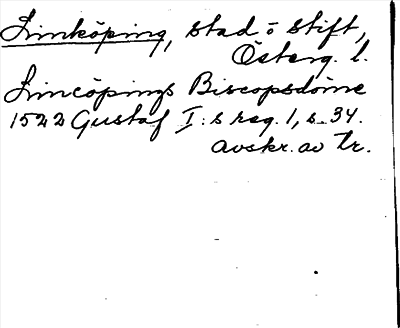 Linköping, stad o stift,
Österg. l.
Lincöpings Biscopsdöme
1522 Gustaf I:s reg. 1, s. 34.
avskr. av tr.